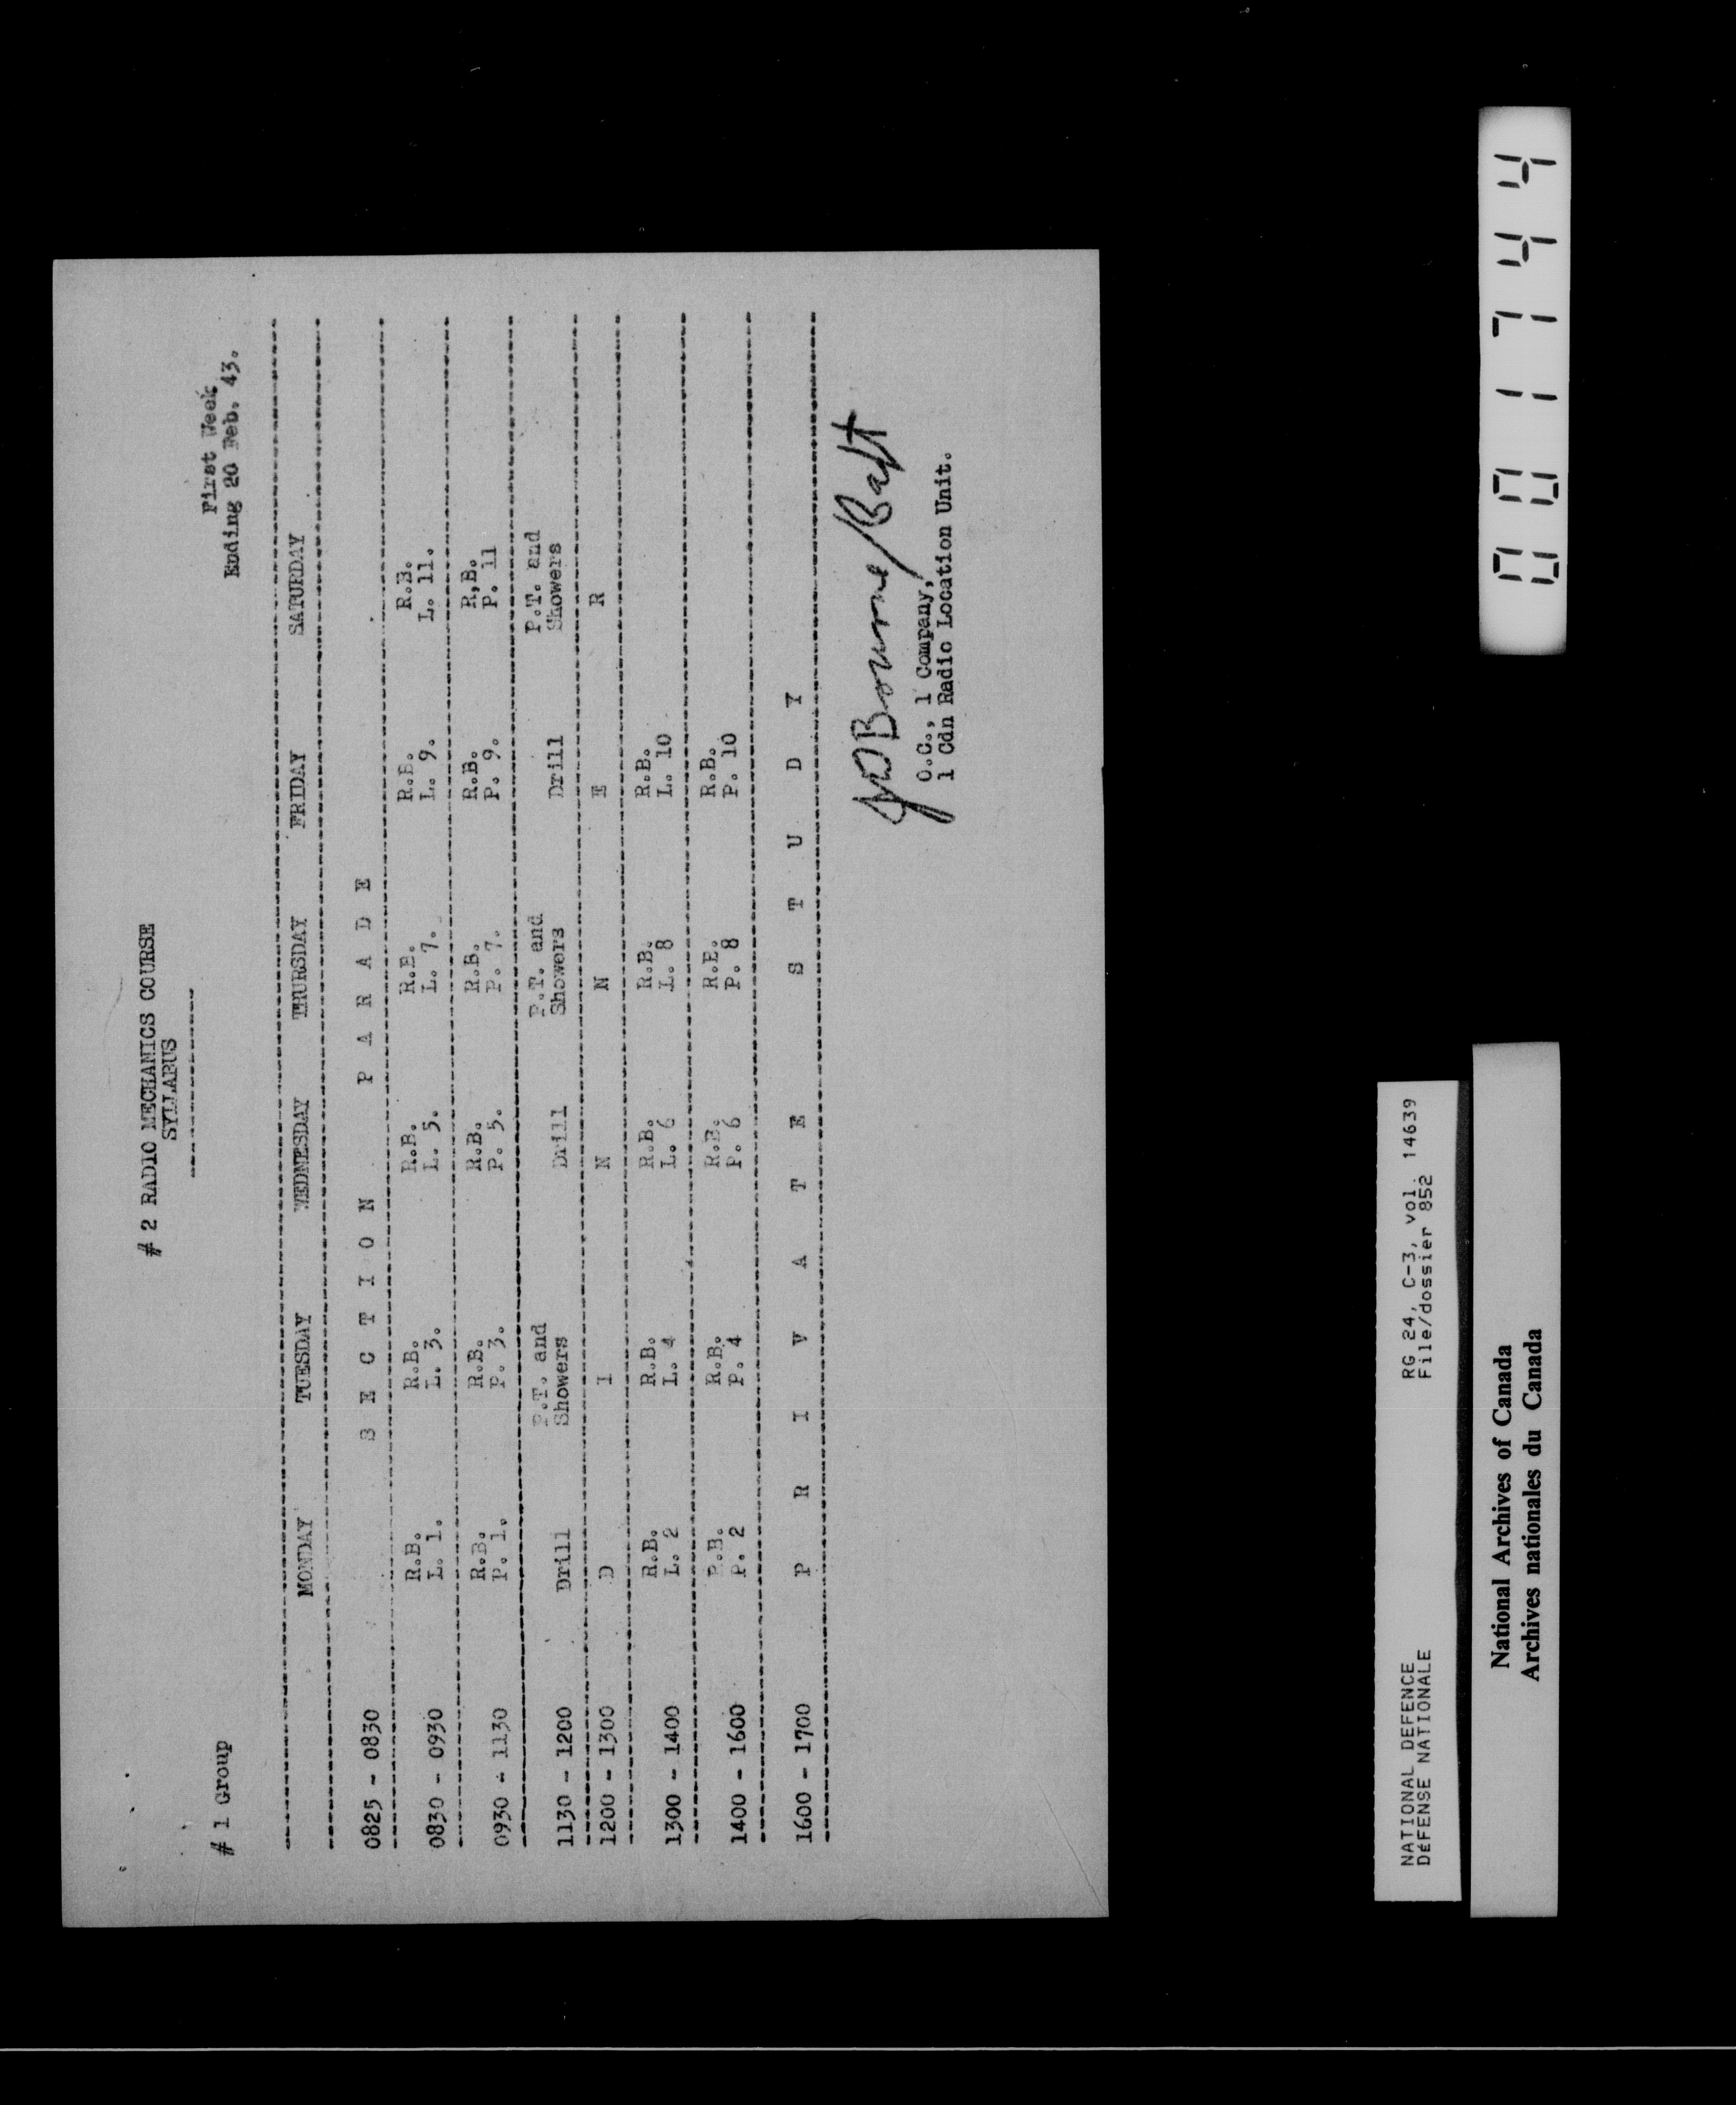 # 2 RADIO MECHANICS COURSE
SYLLABUS
# 1 Group
First Week
Ending 20 Feb. 43.
MONDAY TUESDAY WEDNESDAY THURSDAY FRIDAY SATURDAY
0825 - 0830 S E C T I O N P A R A D E
R.B. R.B. R.B. R.B. R.B. R.B.
0830 - 0930 L. 1. L. 3. L. 5. L. 7. L. 9. L. 11.
R.B. R.B. R.B. R.B. R.B. R,B.
0930 - 1130 P. 1. P. 3. P. 5. P. 7. P. 9. P. 11
P.T. and P.T. and P.T. and
1130 - 1200 Drill Showers Drill Showers Drill Showers
1200 - 1300 D I N N E R
R.B. R.B. R.B. R.B. R.B.
1300 - 1400 L. 2 L. 4 L. 6 L. 8 L. 10
R.B. R.B. R.B. R.B. R.B.
1400 - 1600 P. 2 P. 4 P. 6 P. 8 P. 10
1600 - 1700 P R I V A T E S T U D Y
Bourne/Capt
O.C., 1 Company,
1 Cdn Radio Location Unit.
NATIONAL DEFENCE RG 24, C-3, vol. 14639
DéFENSE NATIONALE File/dossier 852
National Archives of Canada
Archives nationales du Canada
001744